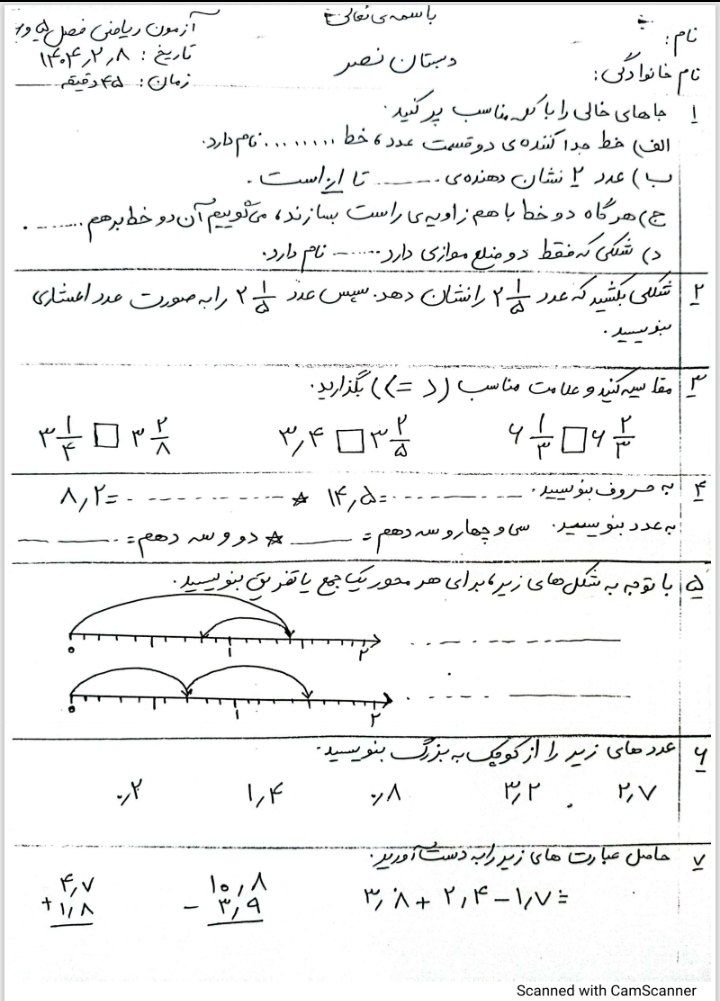 باسمه‌ی تعالی
نام:
آزمون ریاضی فصل ۵ و ۶
نام خانوادگی:
دبستان نصر
تاریخ: ۱۴۰۴,۲,۸
زمان: ۴۵ دقیقه
۱ جاهای خالی را با کلمه مناسب پر کنید.
الف) خط جدا کننده‌ی دو قسمت عدد، خط ......... نام دارد.
ب) عدد ۲ نشان دهنده‌ی ........ تا از است.
ج) هرگاه دو خط با هم زاویه‌ی راست بسازند، می‌گوییم آن دو خط بر هم ........
د) شکلی که فقط دو ضلع موازی دارد ....... نام دارد.
۲ شکلی بکشید که عدد ۲ ۱/۵ را نشان دهد. سپس عدد ۲ ۱/۵ را به صورت عدد اعشاری
بنویسید.
۳ مقایسه کنید و علامت مناسب (< = >) بگذارید.
۶ ۱/۳ □ ۶ ۲/۳ ۳,۴ □ ۳ ۲/۵ ۳ ۱/۴ □ ۳ ۲/۸
۴ به حروف بنویسید. ............ =۱۴,۵ ☆ ............ =۸,۲
به عدد بنویسید. سی و چهار و سه دهم = ______ ☆ دو و سه دهم = ______
۵ با توجه به شکل‌های زیر، برای هر محور یک جمع یا تفریق بنویسید.
۰ ۱ ۲
۰ ۱ ۲
۶ عددهای زیر را از کوچک به بزرگ بنویسید.
۲,۷ ۳,۲ ۰,۸ ۱,۴ ۰,۲
۷ حاصل عبارت های زیر را به دست آورید.
۳,۸ + ۲,۴ - ۱,۷ =
۱۰,۸
- ۳,۹
۴,۷
+ ۱,۸
Scanned with CamScanner